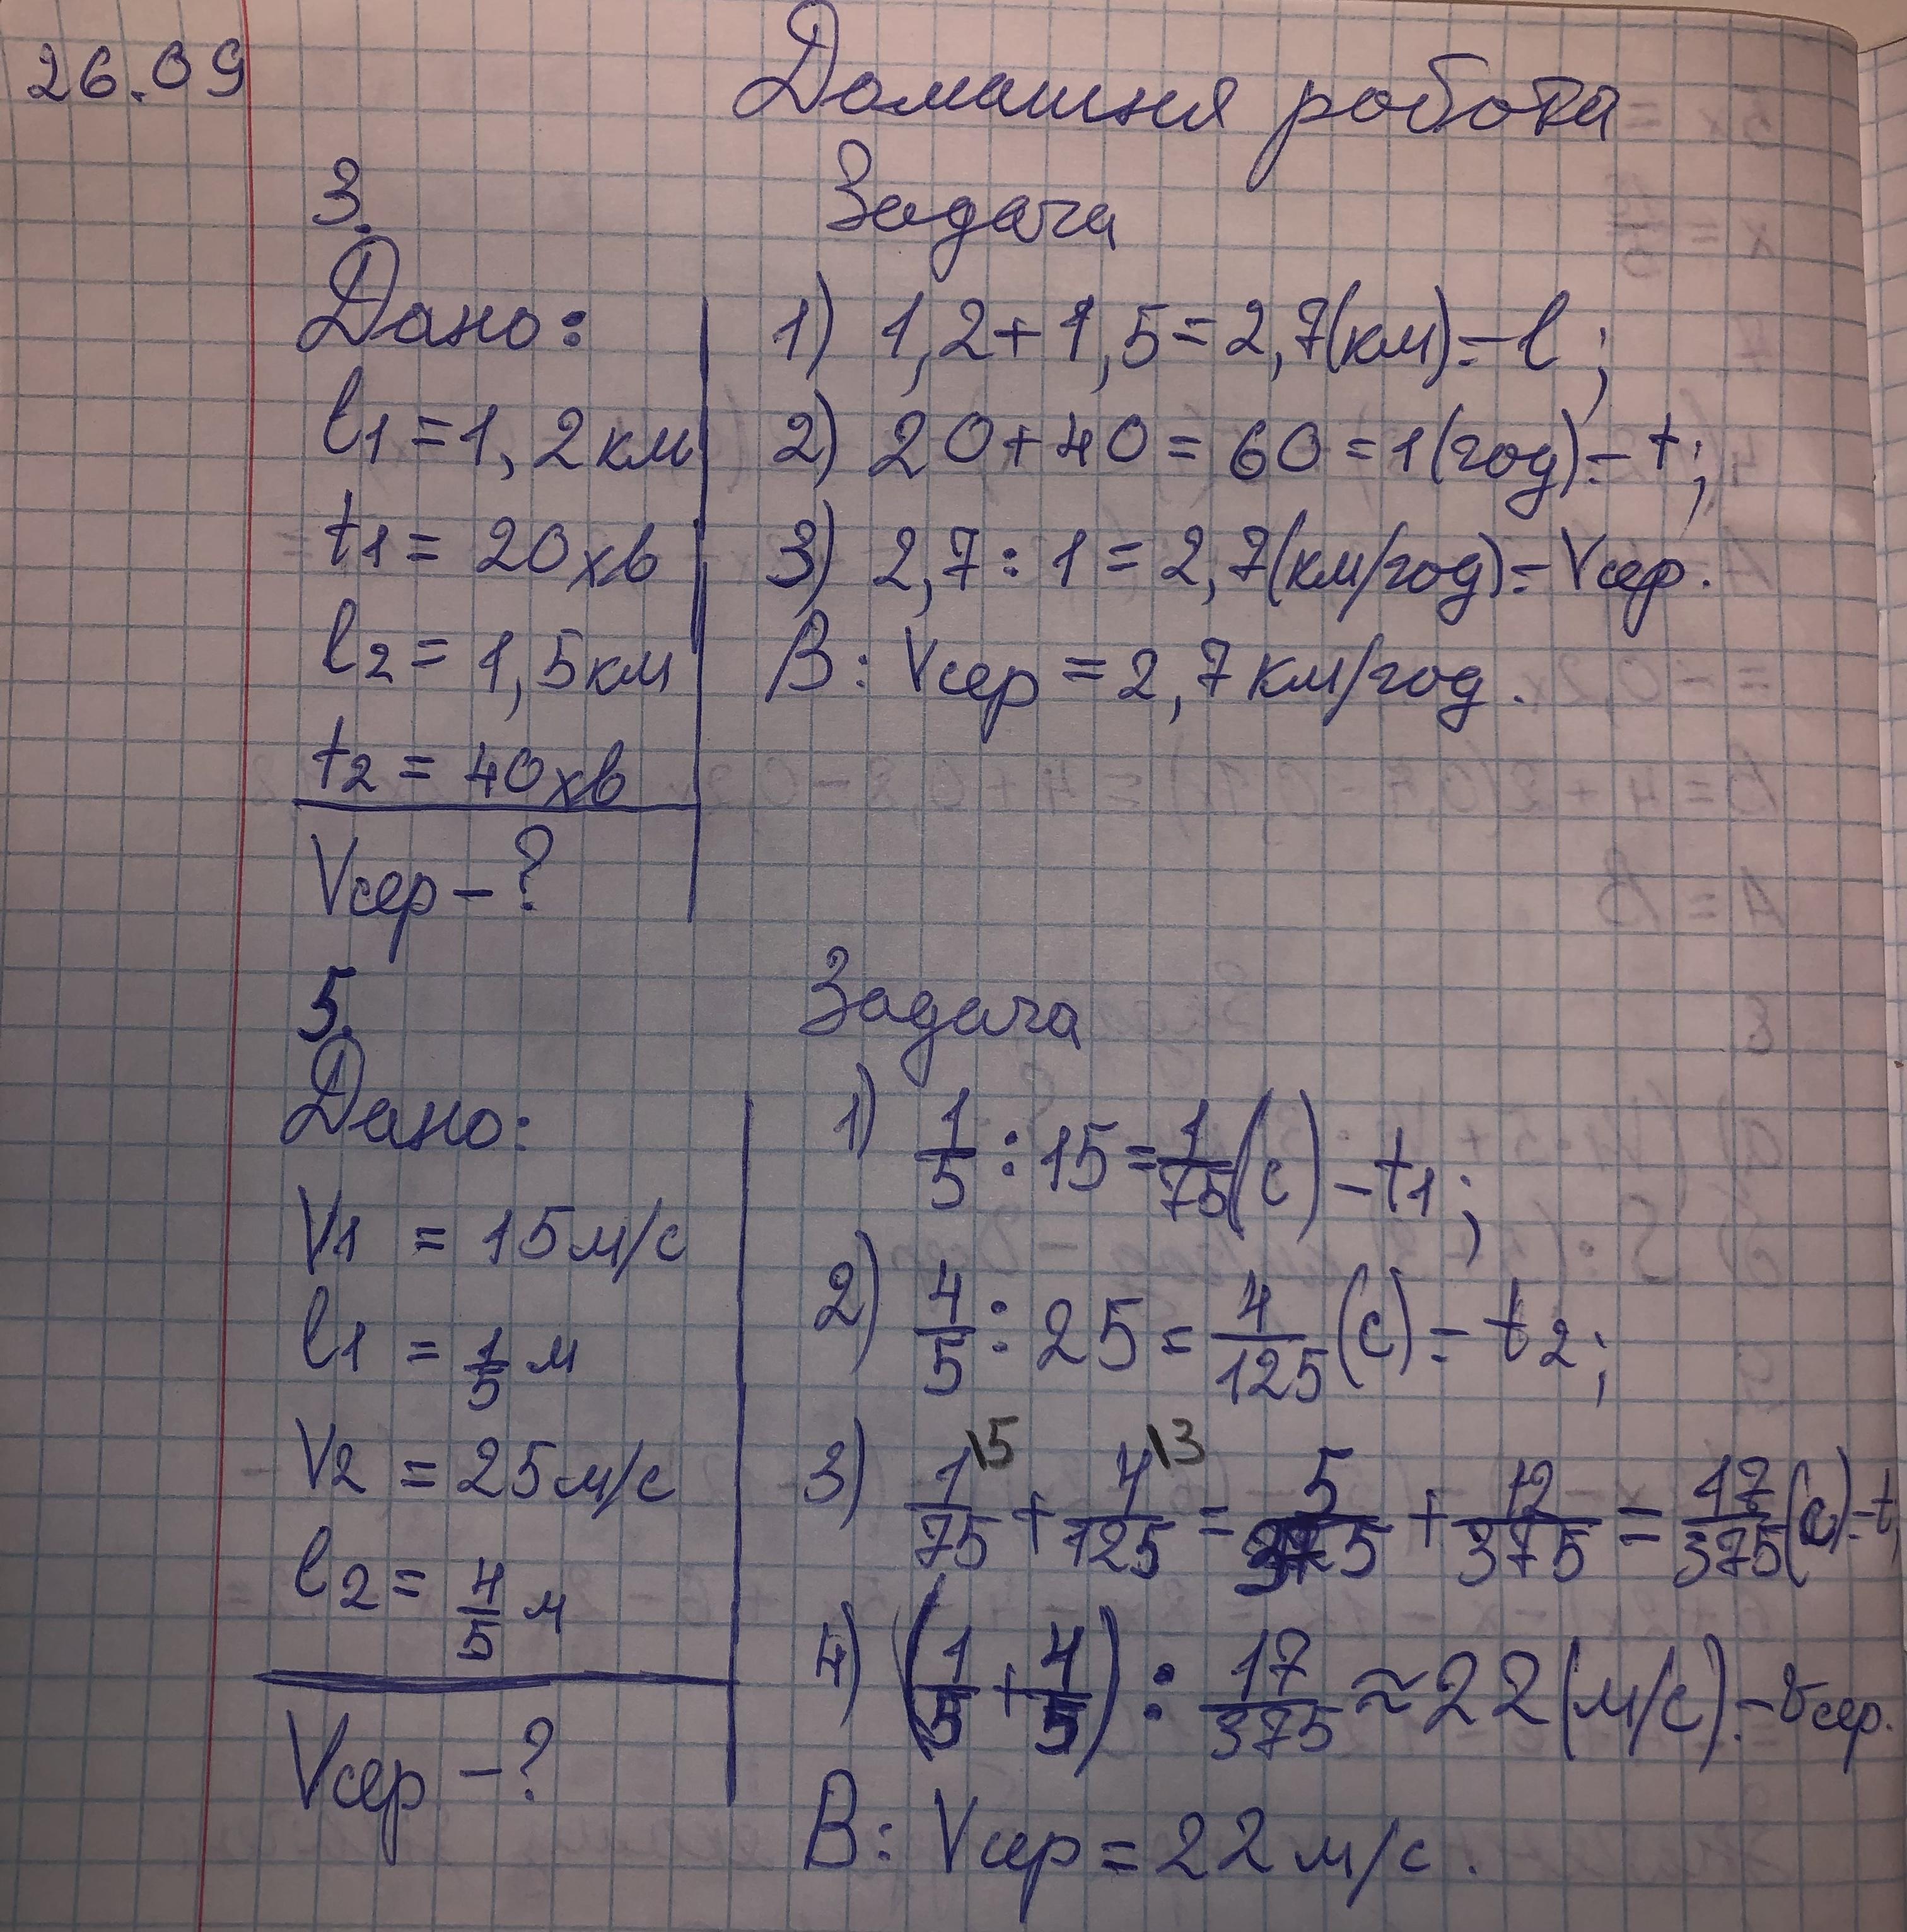 26.09
Домашня робота
3. Задача
Дано:
l1 = 1,2 км
t1 = 20 хв
l2 = 1,5 км
t2 = 40 хв
Vсер - ?
1) 1,2 + 1,5 = 2,7 (км) - l;
2) 20 + 40 = 60 = 1 (год) - t;
3) 2,7 : 1 = 2,7 (км/год) - Vсер.
В: Vсер = 2,7 км/год.
5. Задача
Дано:
V1 = 15 м/с
l1 = 1/5 м
V2 = 25 м/с
l2 = 4/5 м
Vсер - ?
1) 1/5 : 15 = 1/75 (с) - t1;
2) 4/5 : 25 = 4/125 (с) - t2;
3) 1/75 \5 + 4/125 \3 = 5/375 + 12/375 = 17/375 (с) - t;
4) (1/5 + 4/5) : 17/375 ≈ 22 (м/с) - Vсер.
В: Vсер = 22 м/с.